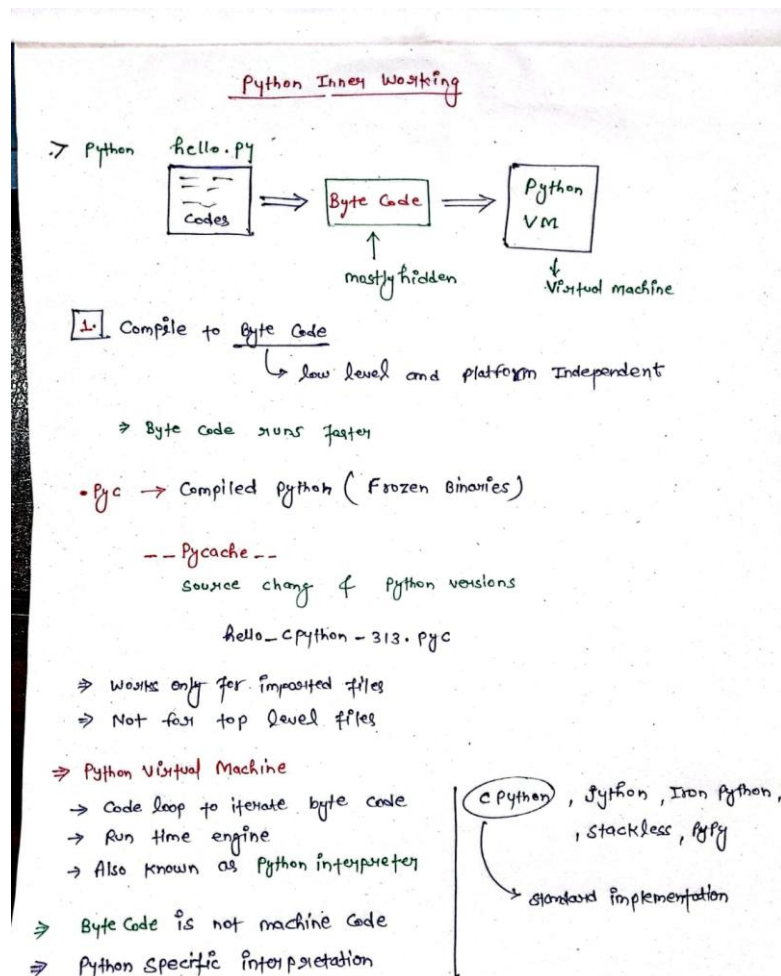 Python Inner Working
.> Python hello.py
Codes ⇒ Byte Code ⇒ Python VM
mostly hidden
Virtual machine
1. Compile to Byte Code
↳ low level and platform Independent
⇒ Byte code runs faster
.pyc → Compiled Python ( Frozen Binaries )
-- Pycache --
source chang & Python versions
hello_CPython-313.pyc
⇒ works only for imported files
⇒ Not for top level files
⇒ Python Virtual Machine
→ Code loop to iterate byte code
→ Run time engine
→ Also known as Python interpreter
⇒ Byte Code is not machine code
⇒ Python Specific interpretation
CPython, Jython, Iron Python,
, stackless, PyPy
standard implementation